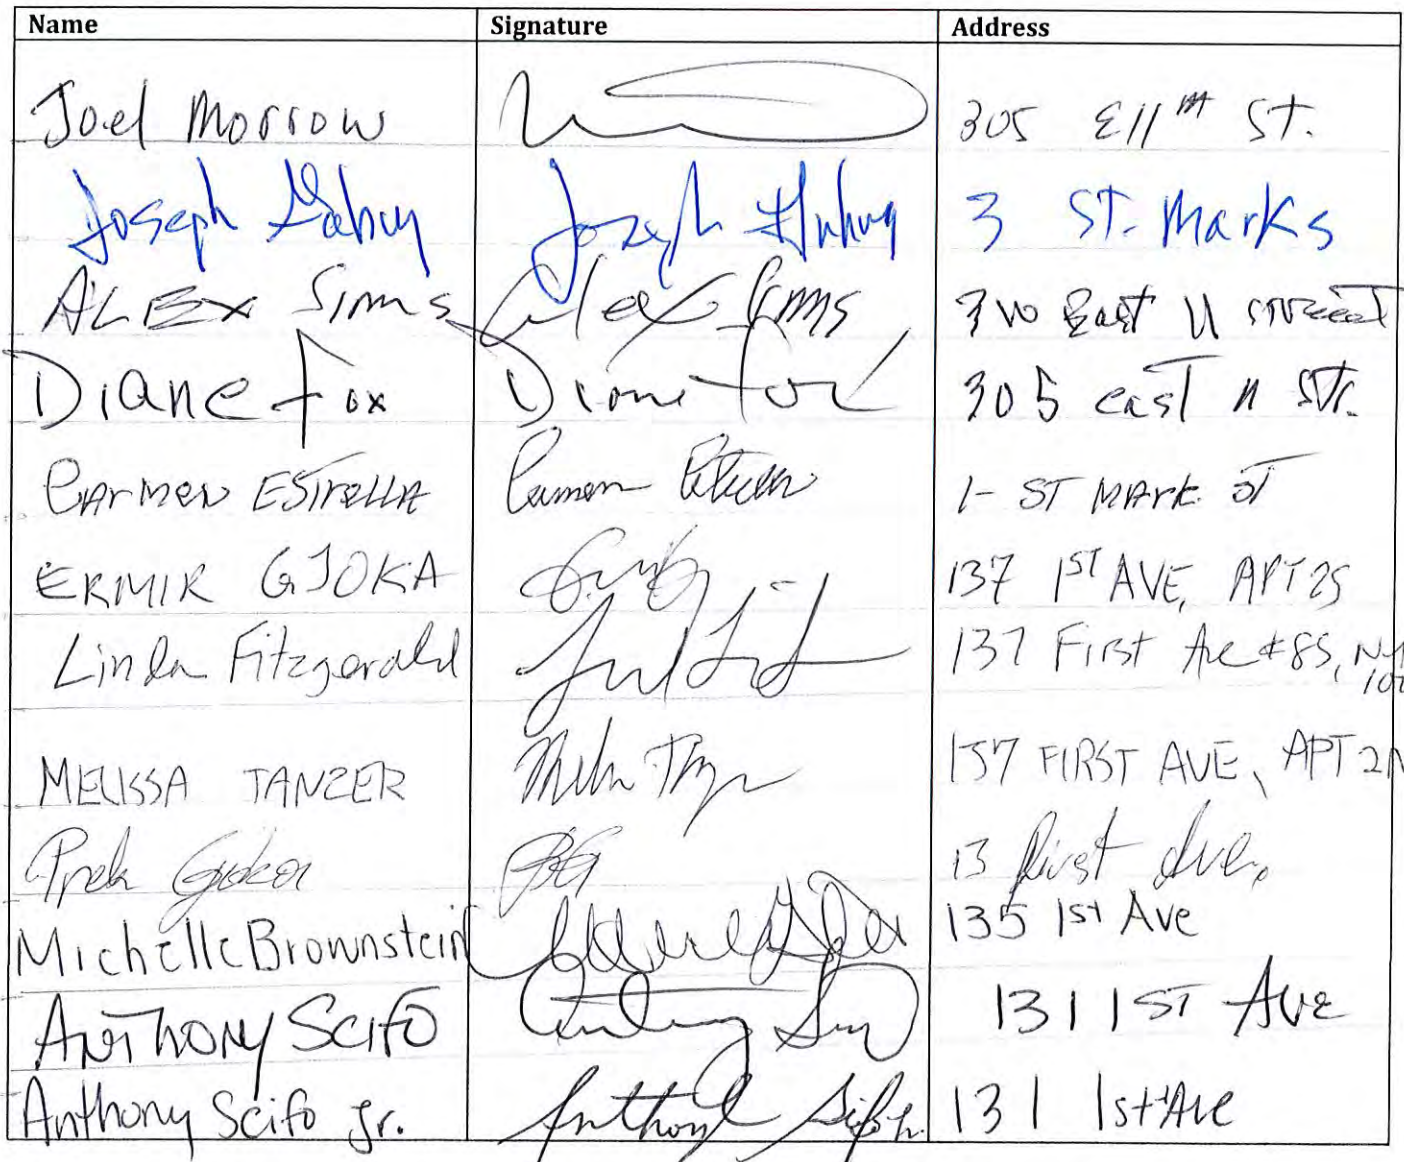 Name Signature Address
Joel Morrow 305 E 11th ST.
Joseph Joseph 3 ST. Marks
ALEX Simms Alex Simms 310 East 11 street
Diane Fox Diane Fox 305 east 11 ST.
CARMEN ESTRELLA Carmen 1- ST MARK ST
ERMIR GJOKA 137 1ST AVE, APT 2S
Linda Fitzgerald 137 First Ave #8S, NY
MELISSA TANZER 137 FIRST AVE, APT 2N
13 first Ave.
Michelle Brownstein 135 1st Ave
ANTHONY SCIFO Anthony 131 1ST Ave
Anthony Scifo Jr. Anthony Scifo Jr. 131 1st Ave